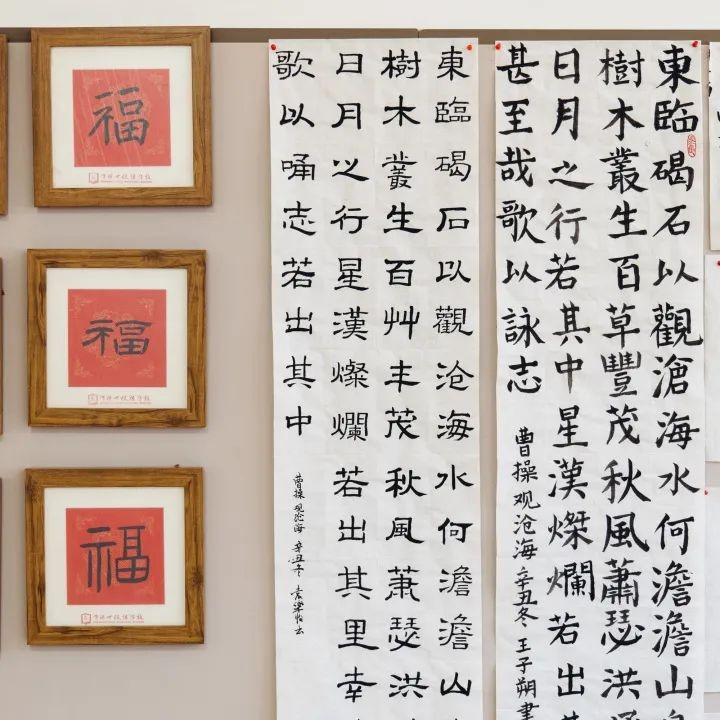 福
福
福
東臨碣石以觀沧海水何澹澹山
樹木叢生百艸丰茂秋風蕭瑟洪
日月之行星漢燦爛若出其里幸
歌以志若出其中
曹操观沧海 辛丑冬
東臨碣石以觀滄海水何澹澹山
樹木叢生百草豐茂秋風蕭瑟洪
日月之行若其中星漢燦爛若出其
甚至哉歌以詠志
曹操观沧海 辛丑冬 王子朔書